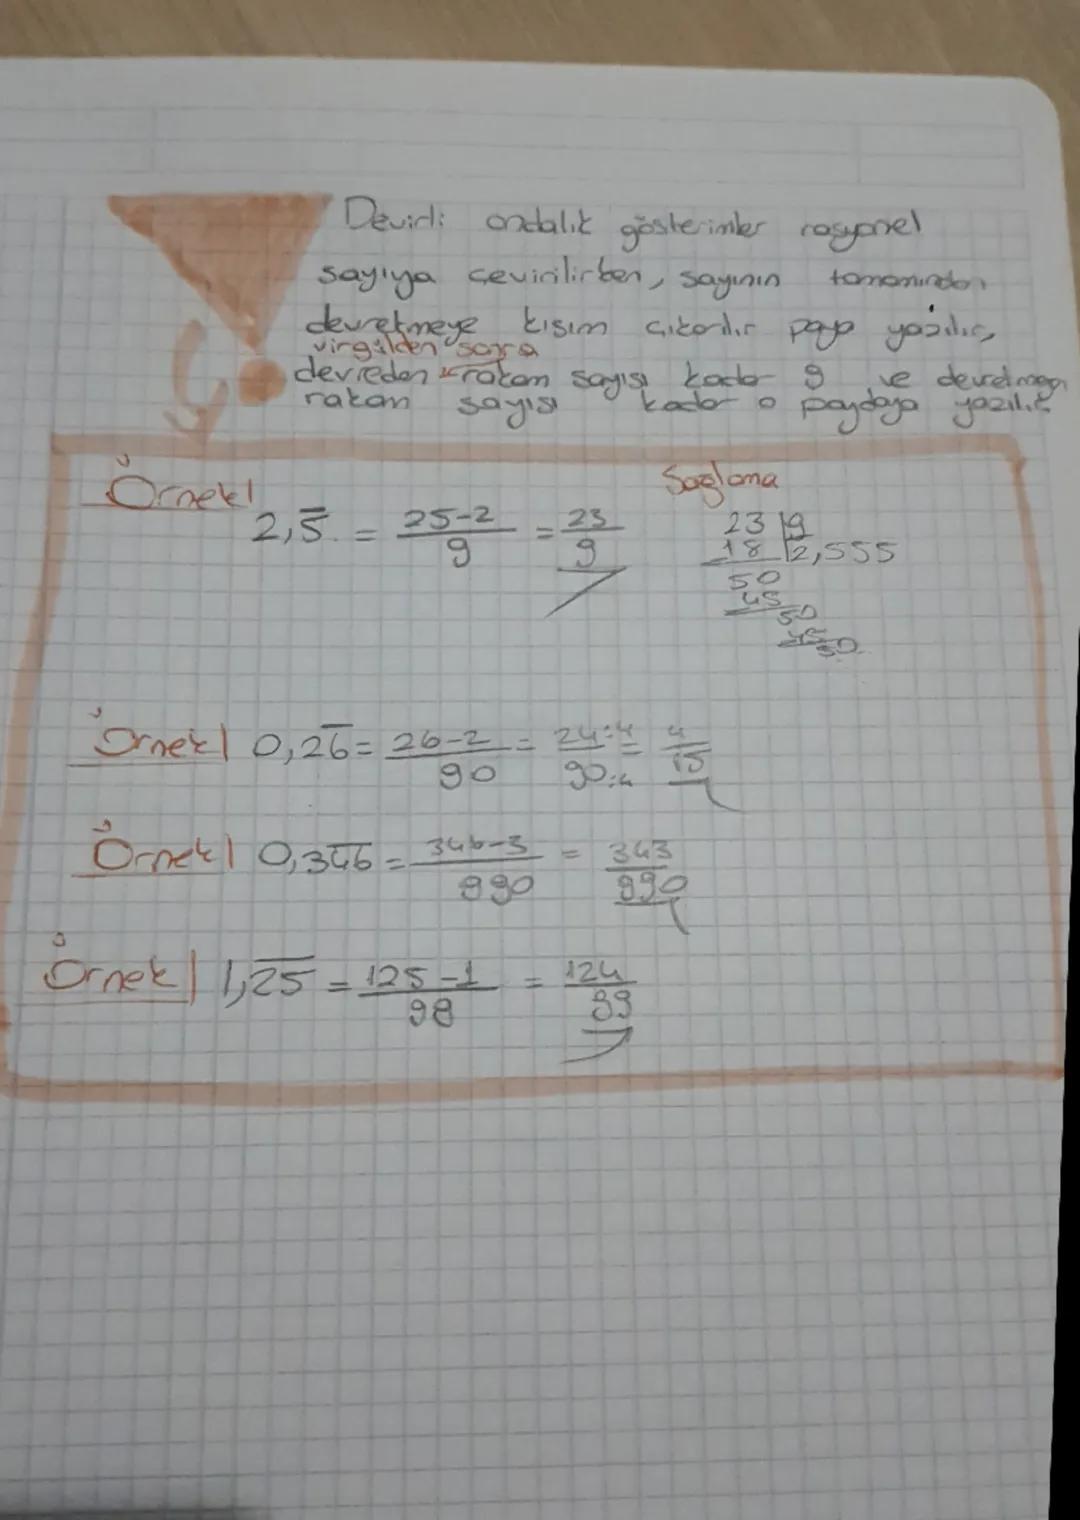 Devirli ondalık gösterimler rasyonel
sayıya çevirilirken, sayının tamamından
devretmeye kısım çıkarılır paya yazılır,
virgülden sonra
devreden rakam sayısı kadar 9 ve devretmeyen
rakam sayısı kadar 0 paydaya yazılır
Örnek|
Sağlama
2,5̅ = 25-2/9 = 23/9
23 |9
18 |2,555
50
45
50
45
50
Örnek| 0,26̅ = 26-2/90 = 24:4/90:4 = 4/15
Örnek| 0,34̅6̅ = 346-3/990 = 343/990
Örnek| 1,2̅5̅ = 125-1/99 = 124/99